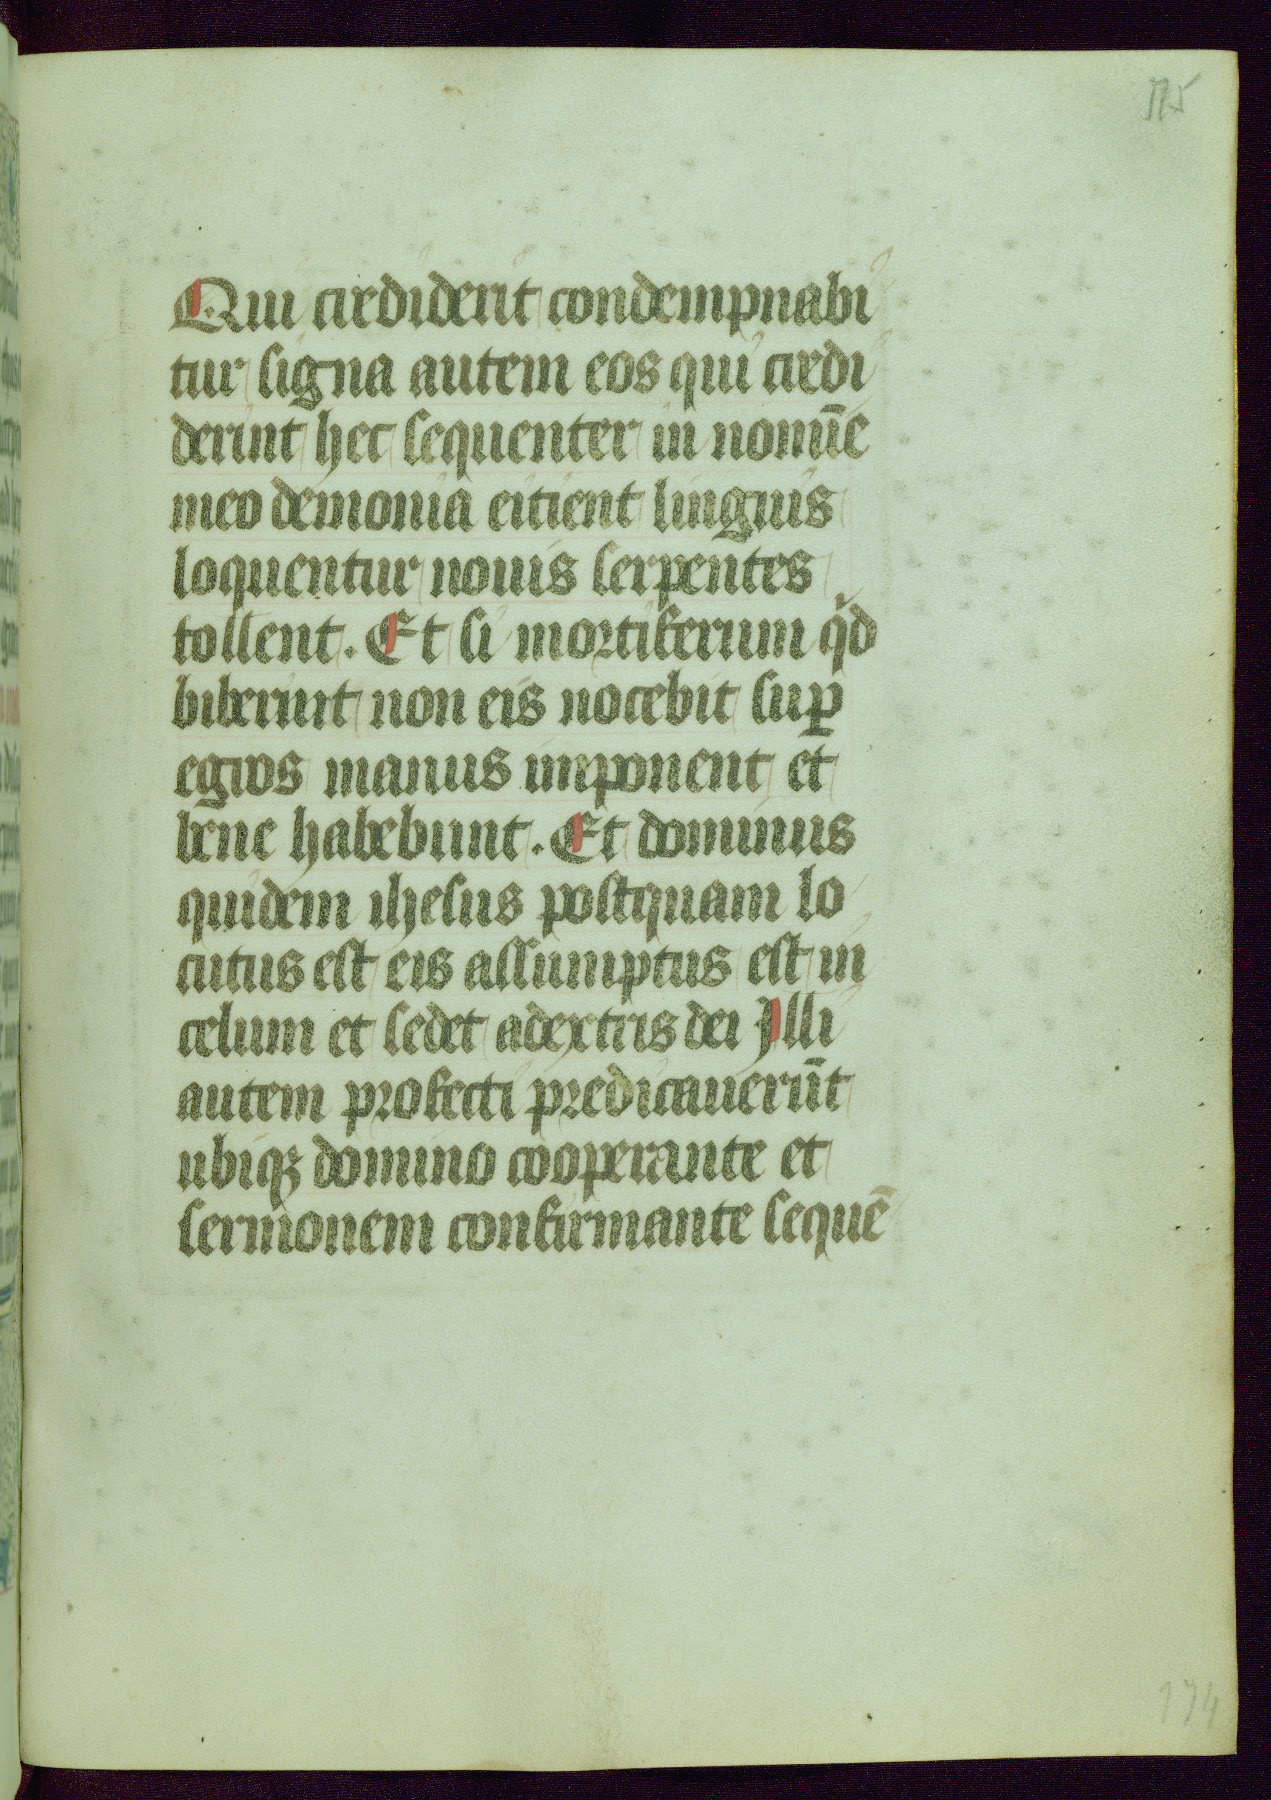 175
Qui crediderit condempnabi
tur signa autem eos qui credi
derint hec sequenter in nomīe
meo demonia eicient linguis
loquentur nouis serpentes
tollent. Et si mortiferum qͥd
biberint non eis nocebit suꝑ
egros manus imponent et
bene habebunt. Et dominus
quidem ihesus postquam lo
cutus est eis assumptus est in
celum et sedet adextris dei Illi
autem profecti predicauerūt
ubiqꝫ domino cooperante et
sermonem confirmante sequē
174